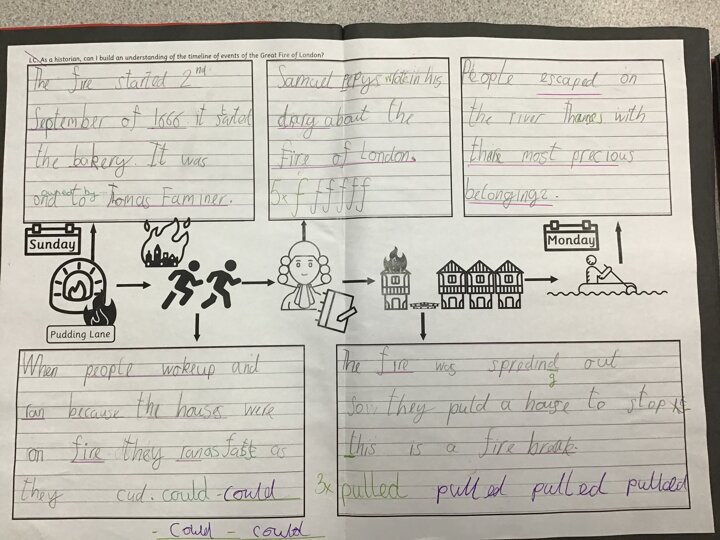 LC. As a historian, can I build an understanding of the timeline of events of the Great Fire of London?
The fire started 2nd
September of 1666. it started
the bakery. It was
ond to Tomas Faminer.
owned by
Samuel Pepys wrote in his
diary about the
fire of London.
5x f f f f f f
People escaped on
the river Thames with
there most precious
belongings.
Sunday
Monday
Pudding Lane
When people wokeup and
ran because the houses were
on fire they ran as fast as
they cud. could - could
- could - could
The fire was spreding out
g
so they puld a house to stop
this is a fire break.
3x pulled pulled pulled pulled